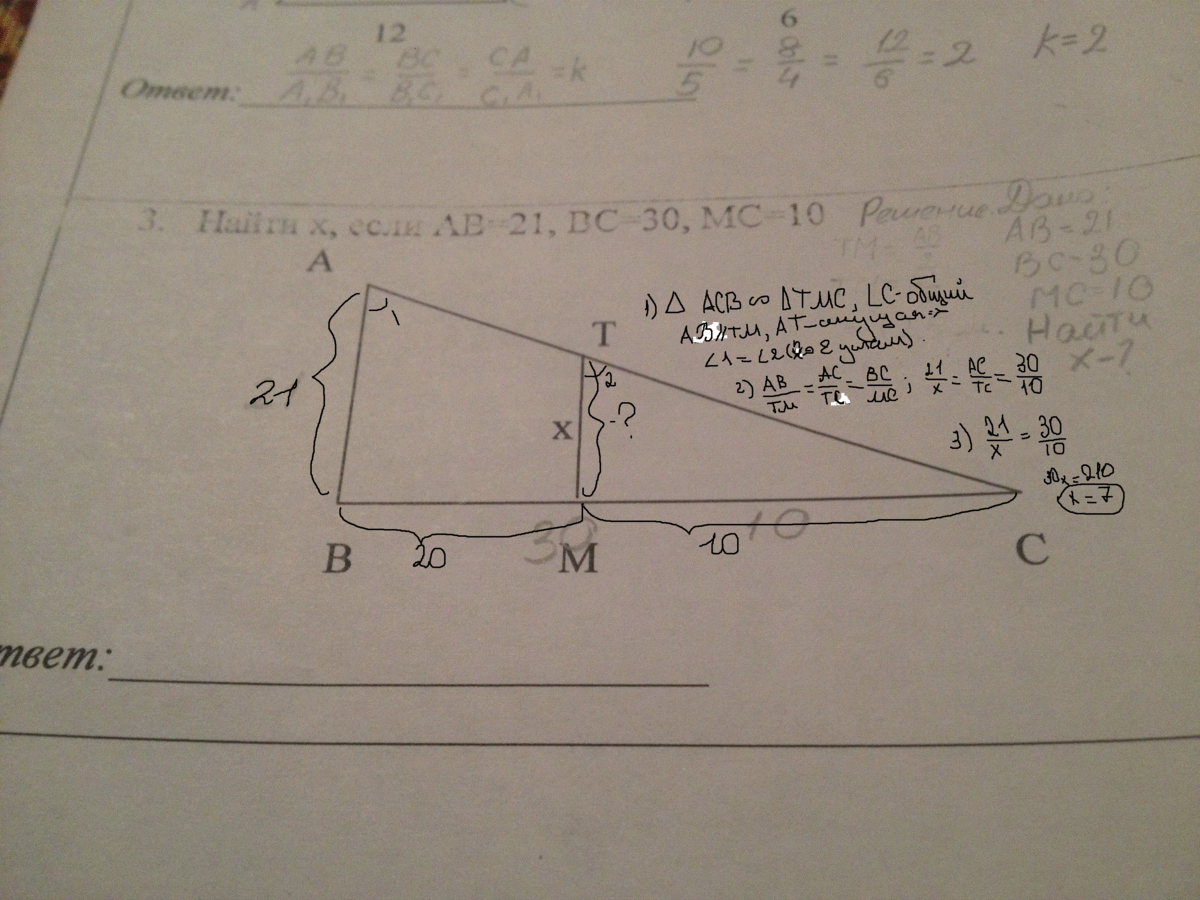 12
6
Ответ: AB/A₁B₁ = BC/B₁C₁ = CA/C₁A₁ = k
10/5 = 8/4 = 12/6 = 2
k=2
3. Найти х, если AB=21, BC=30, MC=10
Решение
TM = AB
Дано:
AB=21
BC=30
MC=10
Найти
x-?
A
1
T
2
21
x
-?
1) Δ ACB ∞ ΔTMC, ∠C-общий
AB∥TM, AT-секущая=>
∠1=∠2(по 2 углам).
2) AB/TM = AC/TC = BC/MC ; 21/x = AC/TC = 30/10
3) 21/x = 30/10
30x=210
x=7
20
30
10
10
B
M
C
твет: